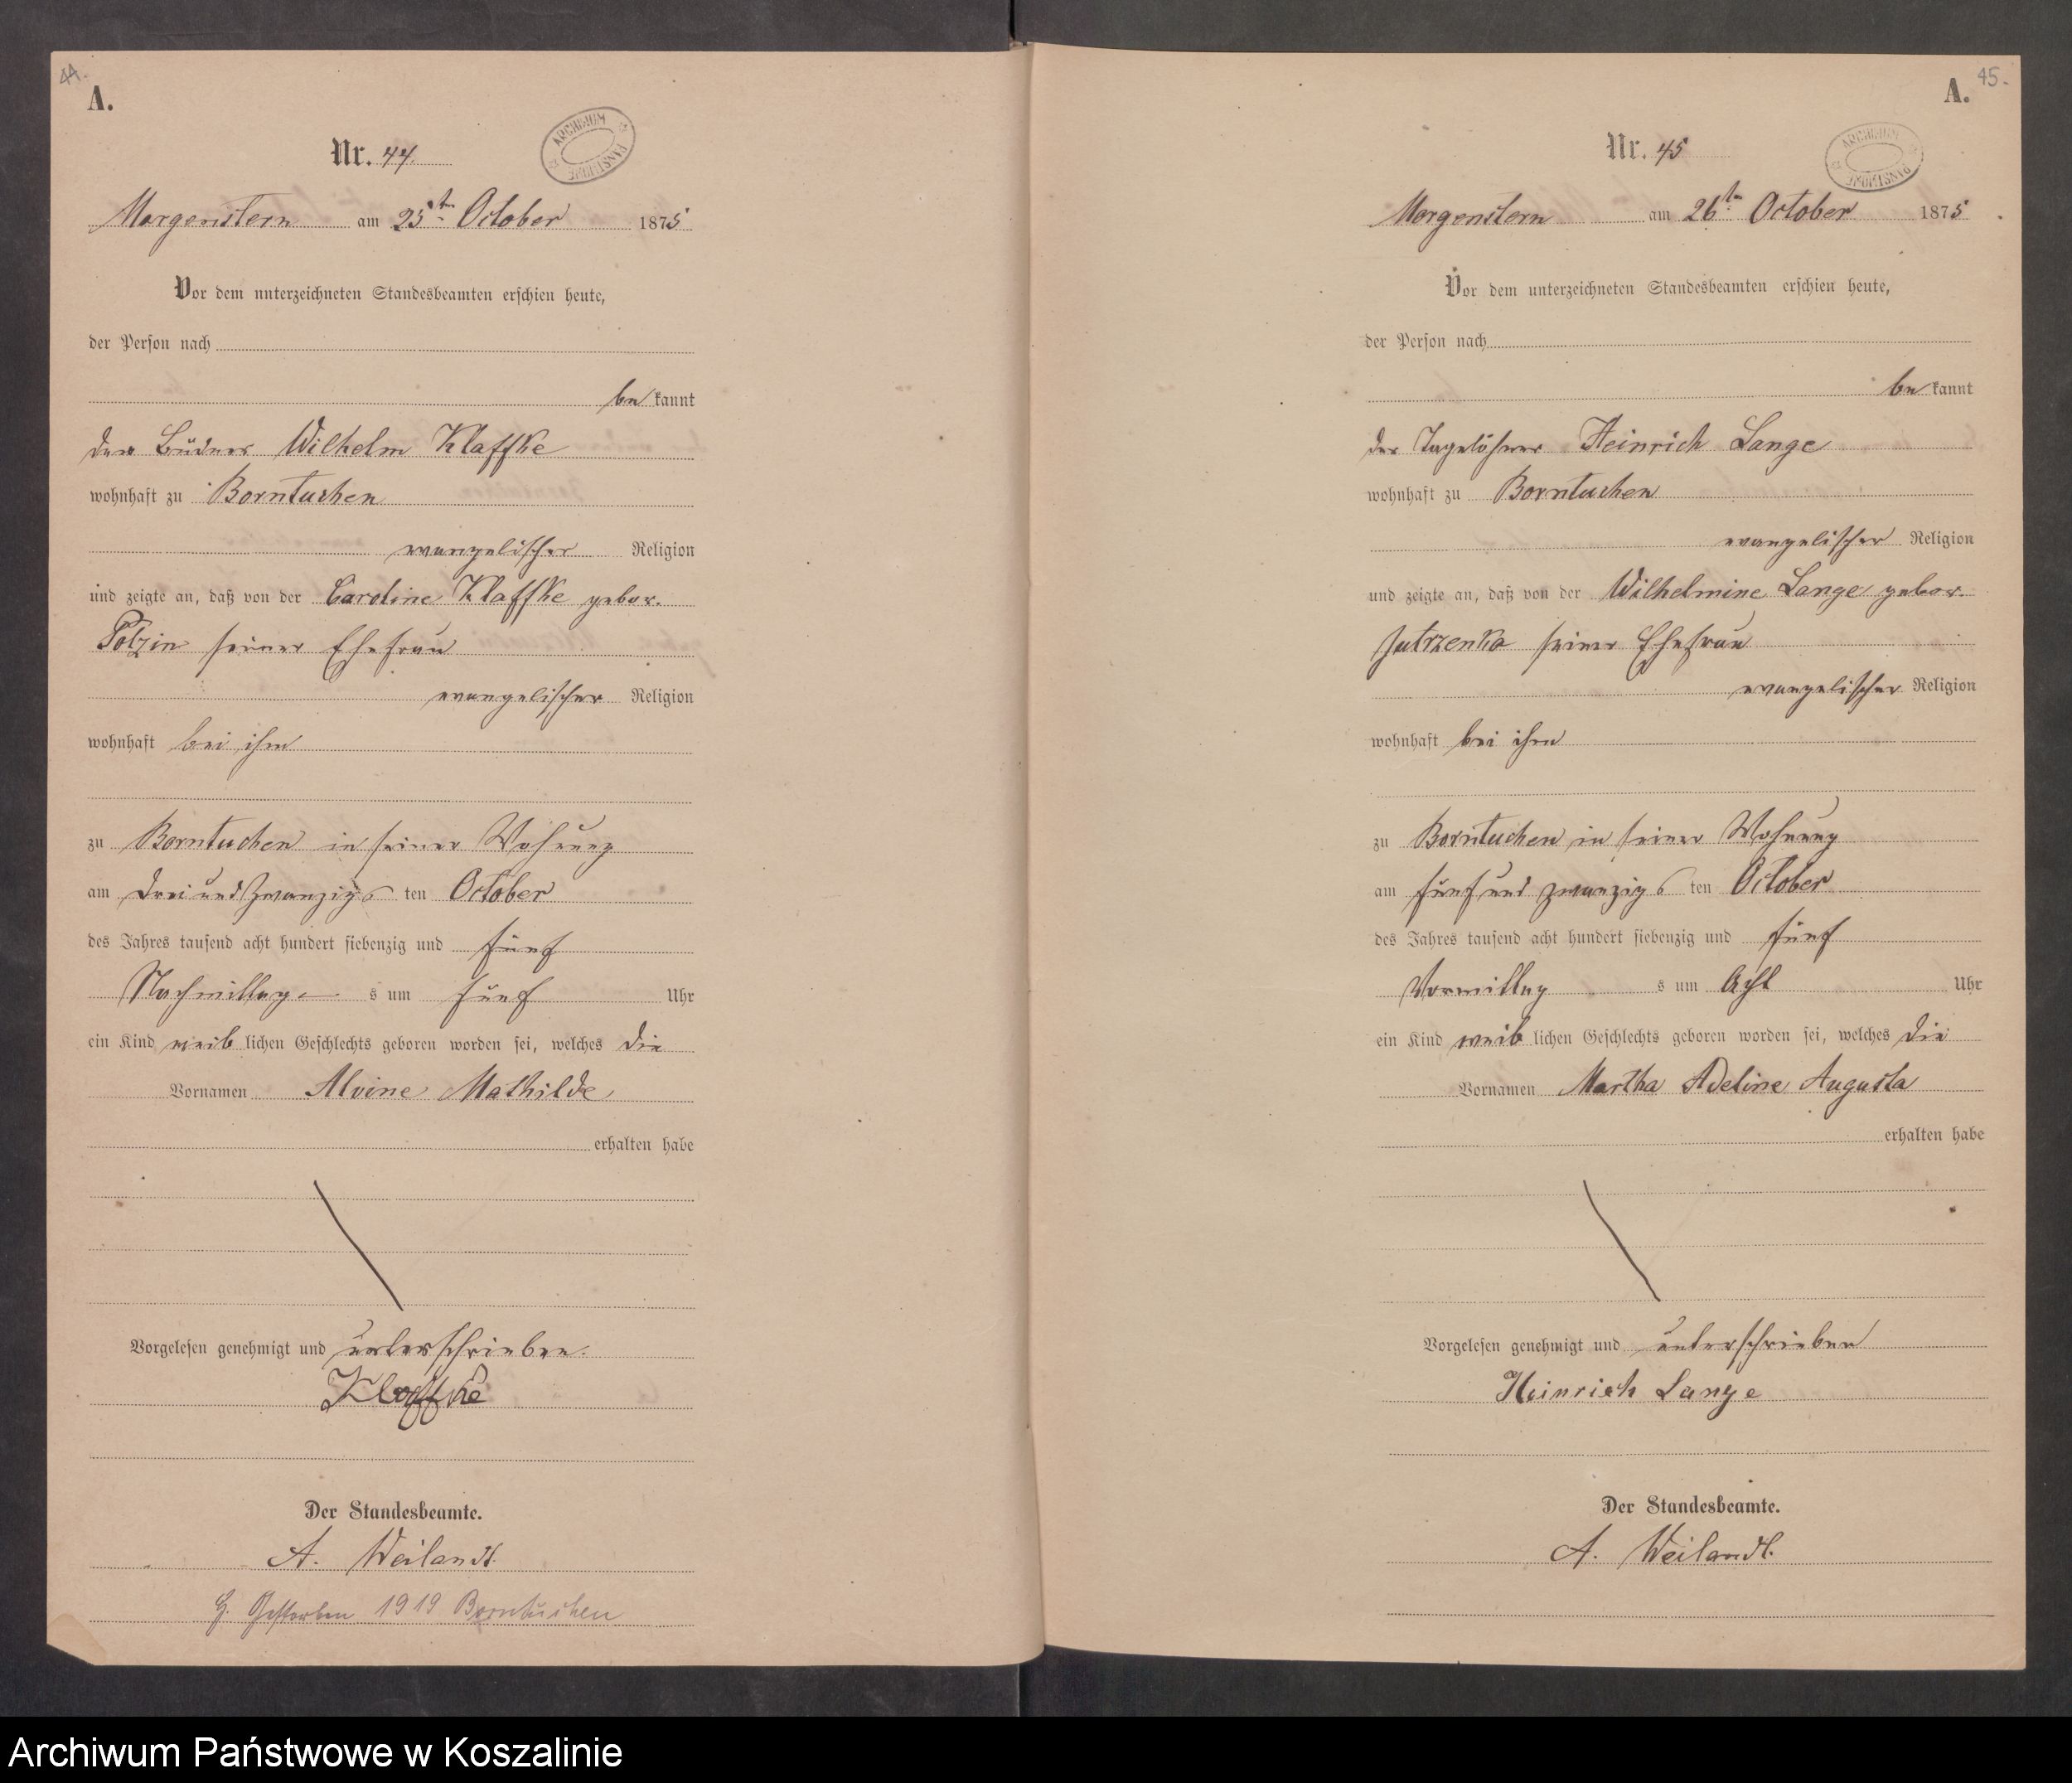 44.
A.
Nr. 44.
ARCHIWUM PAŃSTWOWE
Morgenstern am 25ten October 1875
Vor dem unterzeichneten Standesbeamten erschien heute,
der Person nach
be kannt
der Büdner Wilhelm Klaffke
wohnhaft zu Borntuchen
evangelischer Religion
und zeigte an, daß von der Caroline Klaffke gebor.
Polzin seiner Ehefrau
evangelischer Religion
wohnhaft bei ihm
zu Borntuchen in seiner Wohnung
am drei und zwanzigs ten October
des Jahres tausend acht hundert siebenzig und fünf
Nachmittag s um fünf Uhr
ein Kind weib lichen Geschlechts geboren worden sei, welches die
Vornamen Alvine Mathilde
erhalten habe
Vorgelesen genehmigt und unterschrieben.
Klaffke
Der Standesbeamte.
A. Weilandt.
Gestorben 1919 Borntuchen
45.
A.
Nr. 45
ARCHIWUM PAŃSTWOWE
Morgenstern am 26ten October 1875
Vor dem unterzeichneten Standesbeamten erschien heute,
der Person nach
be kannt
der Tagelöhner Heinrich Lange
wohnhaft zu Borntuchen
evangelischer Religion
und zeigte an, daß von der Wilhelmine Lange gebor.
Jutrzenka seiner Ehefrau
evangelischer Religion
wohnhaft bei ihm
zu Borntuchen in seiner Wohnung
am fünf und zwanzigs ten October
des Jahres tausend acht hundert siebenzig und fünf
Vormittag s um Acht Uhr
ein Kind weib lichen Geschlechts geboren worden sei, welches die
Vornamen Martha Adeline Augusta
erhalten habe
Vorgelesen genehmigt und unterschrieben
Heinrich Lange
Der Standesbeamte.
A. Weilandt.
Archiwum Państwowe w Koszalinie